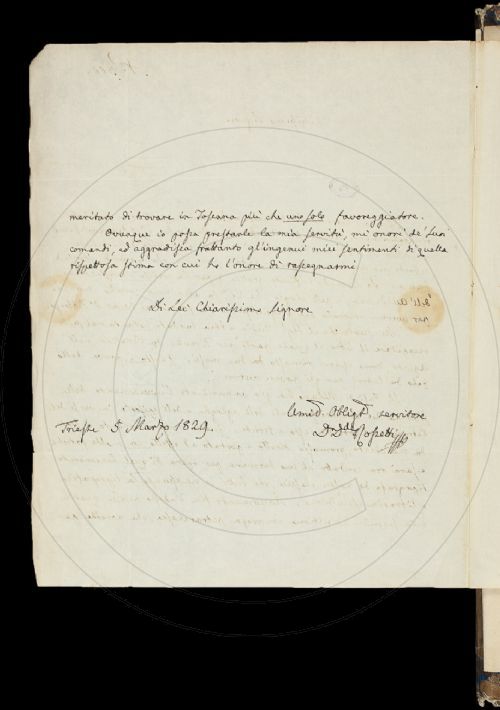 meritato di trovare in Toscana più che uno solo favoreggiatore.
Ovunque io possa prestarle la mia servitù, mi onori de' suoi
comandi, ed aggradisca frattanto gl'ingenui miei sentimenti di quella
rispettosa stima con cui ho l'onore di rassegnarmi
Di Lei Chiarissimo Signore
Umil.º Obbligt.º servitore
Trieste 5 Marzo 1829.
Rossetti